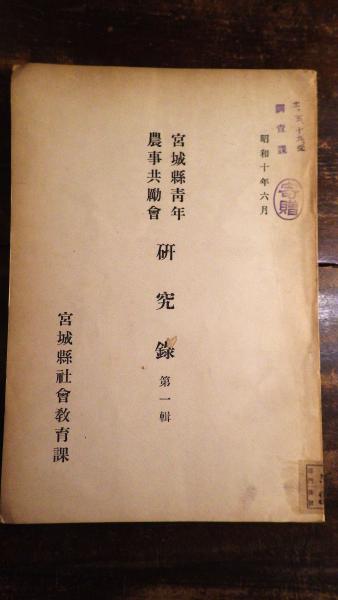 昭和十年六月
調査課
寄贈
宮城縣青年
農事共勵會
研究錄
第一輯
宮城縣社會教育課